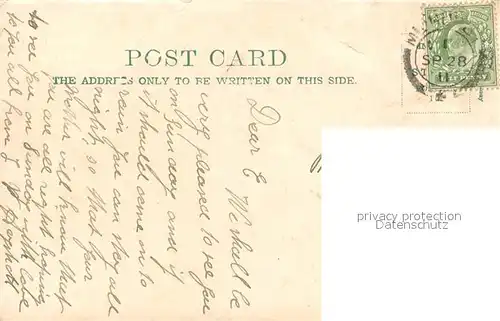 POST CARD
THE ADDRESS ONLY TO BE WRITTEN ON THIS SIDE.
SP 28
11
privacy protection
Datenschutz
Dear E We shall be
very pleased to see you
on Sunday and if
it should come on to
rain you can stay all
night, so that your
Mother will know that
you are all right hoping
to see you on Sunday with love
to you all from